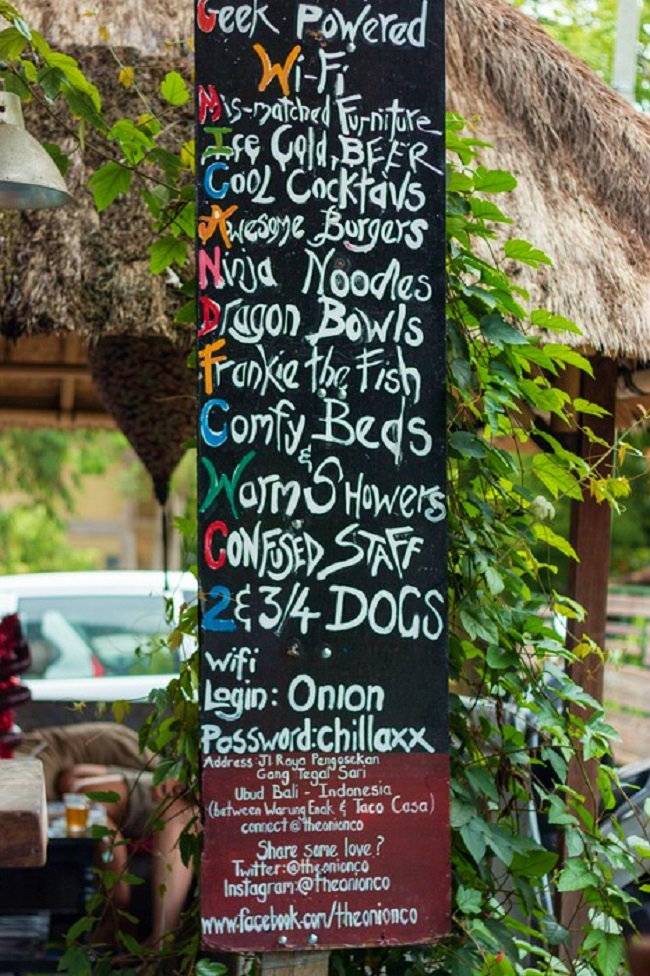 Geek Powered
Wi-Fi
Mis-matched Furniture
Ice Cold BEER
Cool Cocktails
Awesome Burgers
Ninja Noodles
Dragon Bowls
Frankie the Fish
Comfy Beds
&
Warm Showers
CONFUSED STAFF
2 & 3/4 DOGS
wifi
Login: Onion
Password:chillaxx
Address Jl Raya Pengosekan
Gang Tegal Sari
Ubud Bali - Indonesia
(between Warung Enak & Taco Casa)
connect@theonionco
Share some love?
Twitter:@theonionco
Instagram:@theonionco
www.facebook.com/theonionco